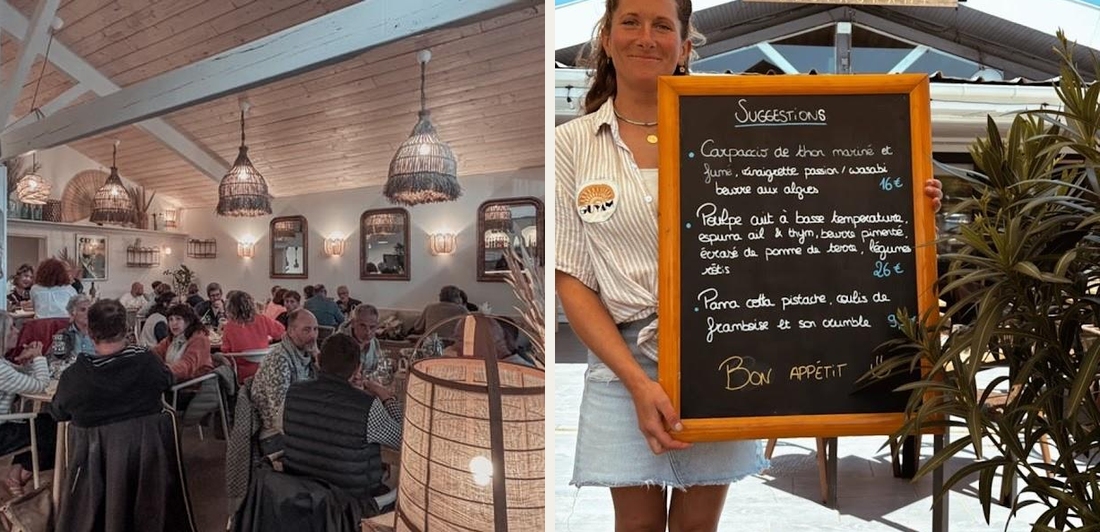 Suggestions
Carpaccio de thon mariné et
fumé, vinaigrette passion / wasabi
beurre aux algues 16€
Poulpe cuit à basse temperature,
espuma ail & thym, beurre pimenté,
écrasé de pomme de terre, légumes
rôtis 26€
Panna cotta pistache, coulis de
framboise et son crumble 9,
Bon appétit